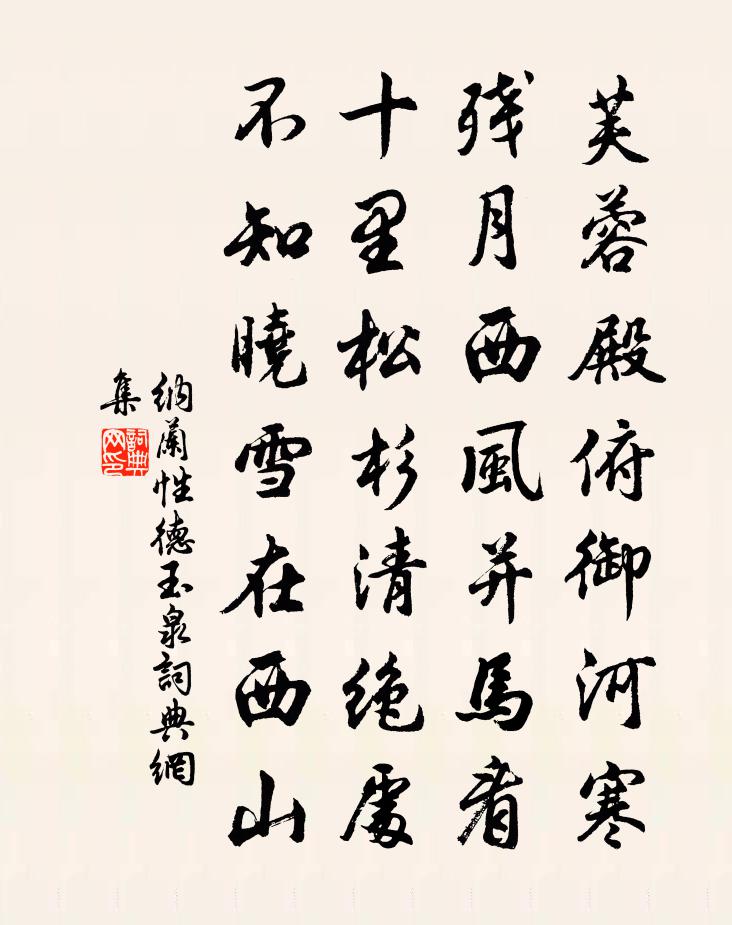 芙蓉殿俯御河寒
残月西風并馬看
十里松杉清绝處
不知曉雪在西山
納蘭性德玉泉詞典網
集
詞典網印